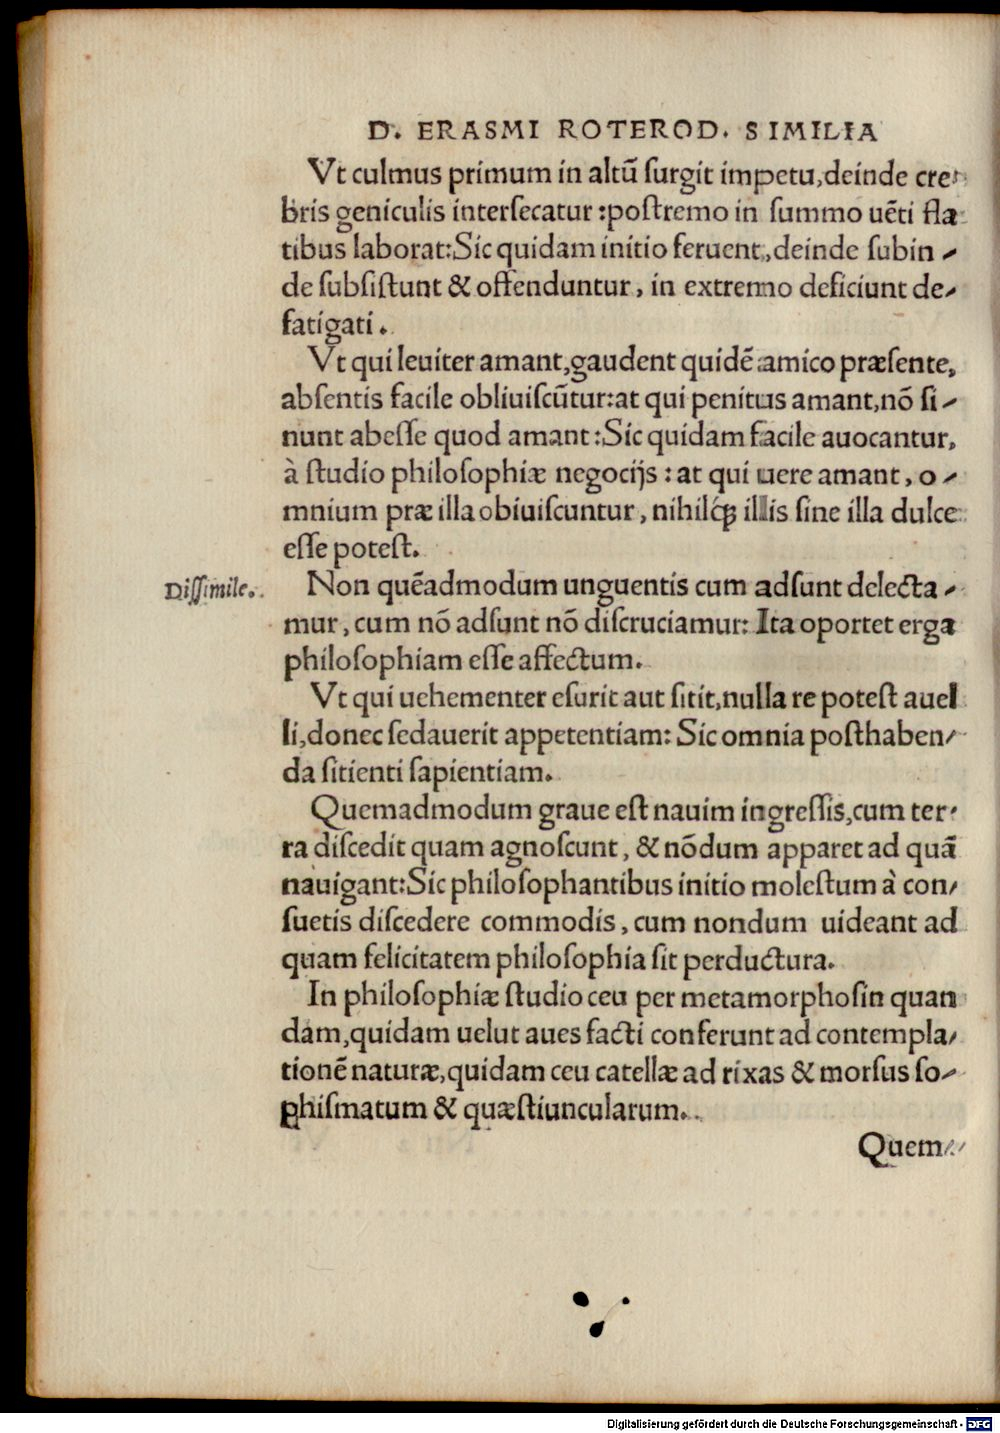 D. ERASMI ROTEROD. SIMILIA
Vt culmus primum in altū ſurgit impetu, deinde cre-
bris geniculis interſecatur: poſtremo in ſummo uēti fla
tibus laborat: Sic quidam initio feruent, deinde ſubin-
de ſubſiſtunt & offenduntur, in extremo deficiunt de-
fatigati.
Vt qui leuiter amant, gaudent quidē amico præſente,
abſentis facile obliuiſcūtur: at qui penitus amant, nō ſi-
nunt abeſſe quod amant: Sic quidam facile auocantur,
à ſtudio philoſophiæ negocijs: at qui uere amant, o-
mnium præ illa obiuiſcuntur, nihilq́ꝫ illis ſine illa dulce
eſſe poteſt.
Diſſimile.
Non quēadmodum unguentis cum adſunt delecta-
mur, cum nō adſunt nō diſcruciamur: Ita oportet erga
philoſophiam eſſe affectum.
Vt qui uehementer eſurit aut ſitit, nulla re poteſt auel
li, donec ſedauerit appetentiam: Sic omnia poſthaben-
da ſitienti ſapientiam.
Quemadmodum graue eſt nauim ingreſſis, cum ter-
ra diſcedit quam agnoſcunt, & nōdum apparet ad quā
nauigant: Sic philoſophantibus initio moleſtum à con-
ſuetis diſcedere commodis, cum nondum uideant ad
quam felicitatem philoſophia ſit perductura.
In philoſophiæ ſtudio ceu per metamorphoſin quan
dam, quidam uelut aues facti conferunt ad contempla-
tionē naturæ, quidam ceu catellæ ad rixas & morſus ſo-
phiſmatum & quæſtiuncularum.
Quem-
Digitalisierung gefördert durch die Deutsche Forschungsgemeinschaft - DFG